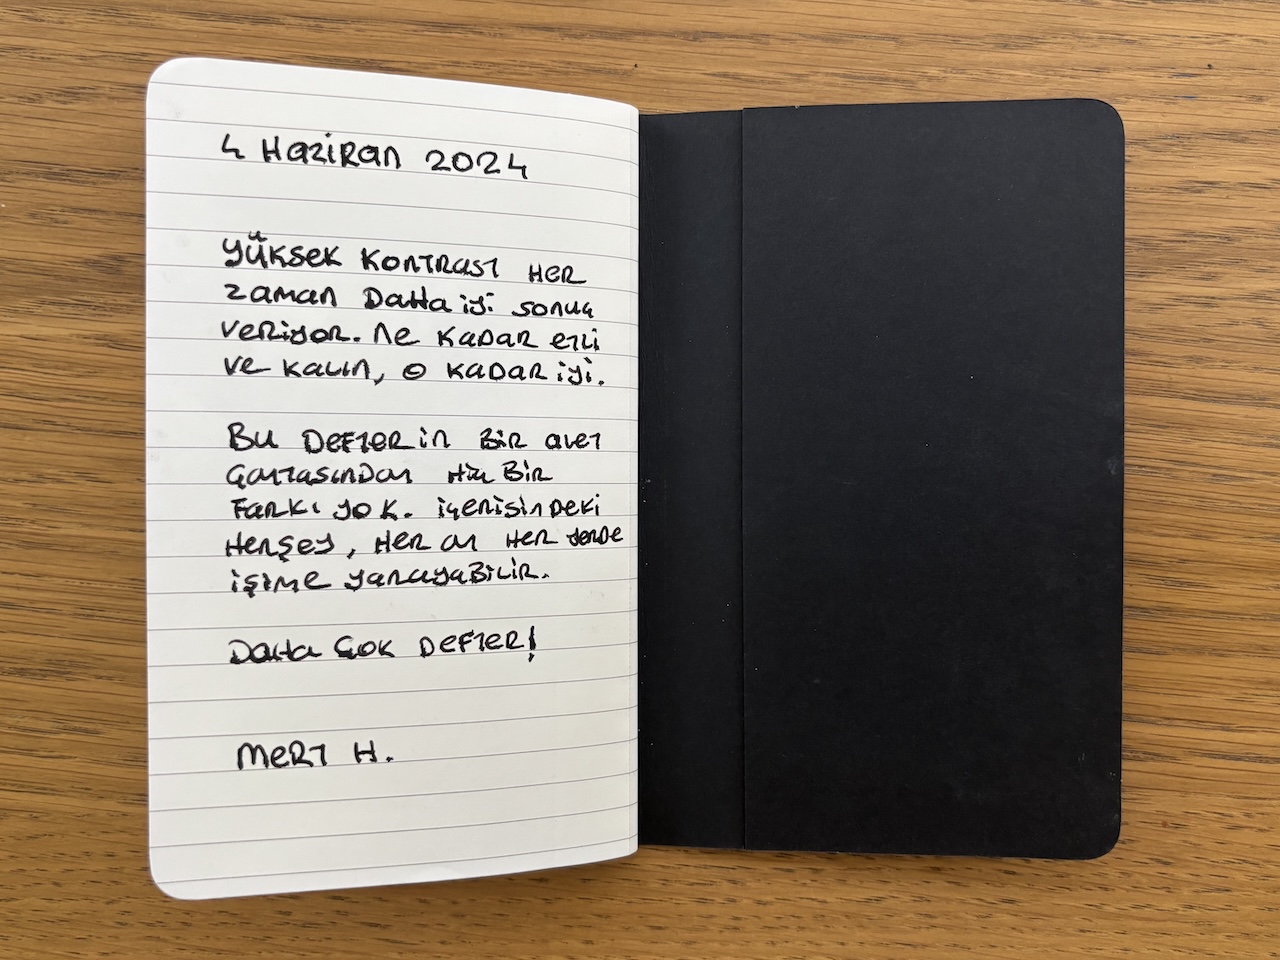 4 Haziran 2024
Yüksek kontrast her
zaman daha iyi sonuç
veriyor. Ne kadar etli
ve kalın, o kadar iyi.
Bu defterin bir alet
çantasından hiç bir
farkı yok. İçerisindeki
herşey, her an her yerde
işime yarayabilir.
Daha çok defter!
Mert H.